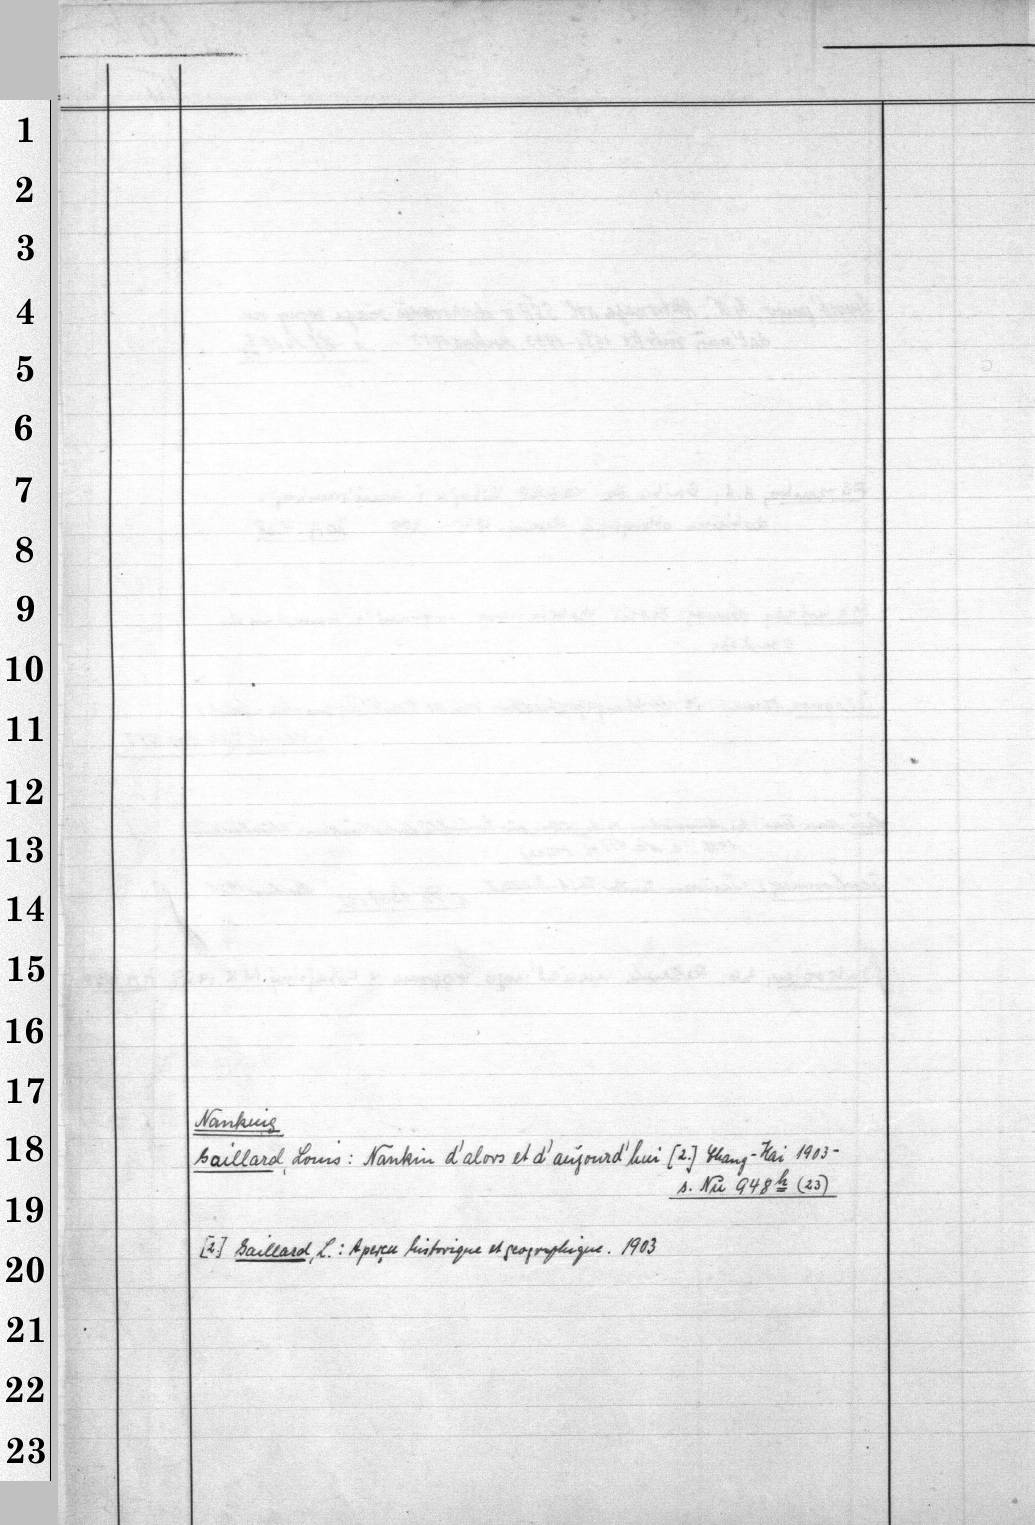 1
2
3
4
5
6
7
8
9
10
11
12
13
14
15
16
17
Nanking
18
Gaillard, Louis: Nankin d'alors et d'aujourd'hui [2.] Chang-Hai 1903-
s. Nu 948 h (23)
19
[2] Gaillard, L.: Aperçu historique et geographique. 1903
20
21
22
23